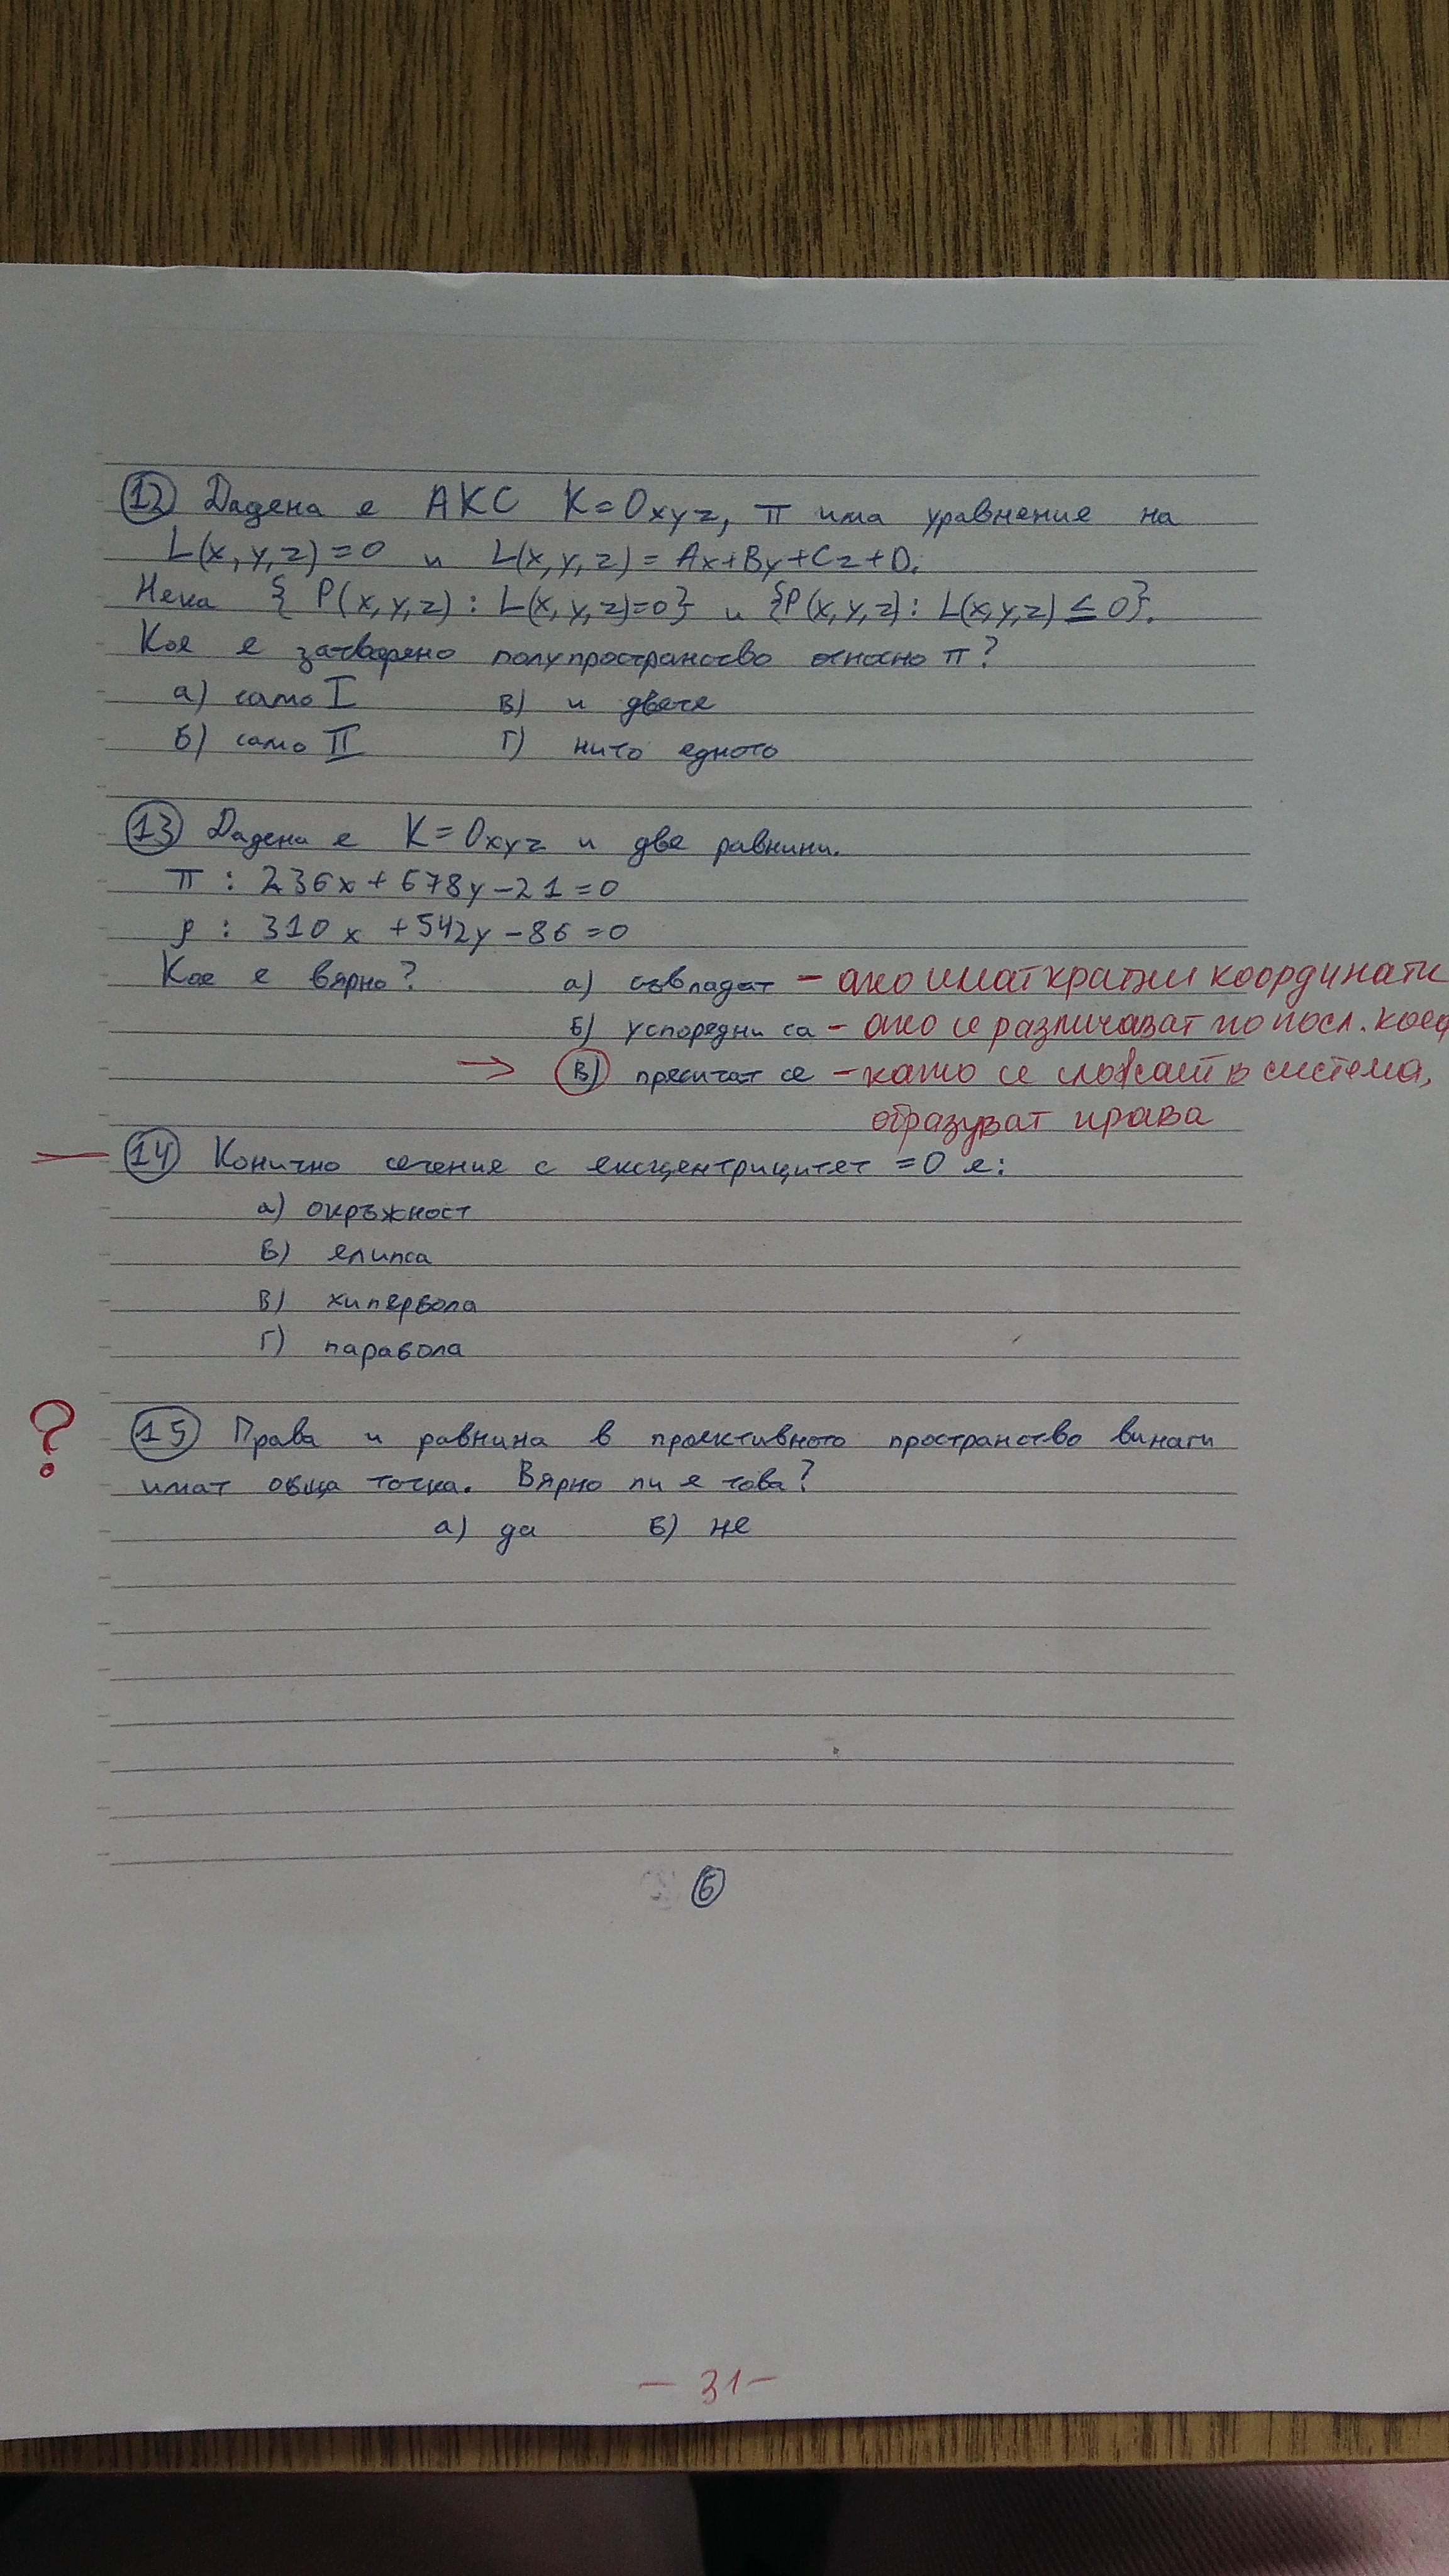 (12) Дадена е АКС K=Oxyz, π има уравнение на
L(x,y,z)=0 и L(x,y,z)=Ax+By+Cz+D.
Нека {P(x,y,z): L(x,y,z)=0} и {P(x,y,z): L(x,y,z)≤0}.
Кое е затворено полупространство относно π?
а) само I в) и двете
б) само II г) нито едното
(13) Дадена е K=Oxyz и две равнини.
π: 236x+678y-21=0
ρ: 310x+542y-86=0
Кое е вярно? а) съвпадат - ако имат кратни координати
б) успоредни са - ако се различават по посл. коеф
→ в) пресичат се - като се сложат в система,
образуват права
— (14) Конично сечение с ексцентрицитет =0 е:
а) окръжност
б) елипса
в) хипербола
г) парабола
? (15) Права и равнина в проективното пространство винаги
имат обща точка. Вярно ли е това?
а) да б) не
(6)
- 31 -